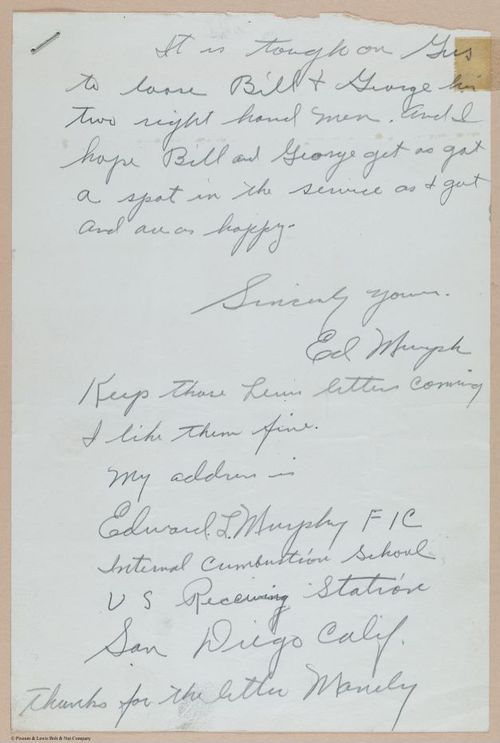 It is tough on Gus
to loose Bill + George his
two right hand men. And I
hope Bill and George get as got
a spot in the service as I got
and are as happy.
Sincerly yours.
Ed Murph
Keep those Lewis letters coming
I like them fine.
My address is
Edward L. Murphy F 1C
Internal Cumbustion School
U S Receiving Station
San Diego Calif.
Thanks for the letter
© Peavats & Lewis Bolt & Nut Company